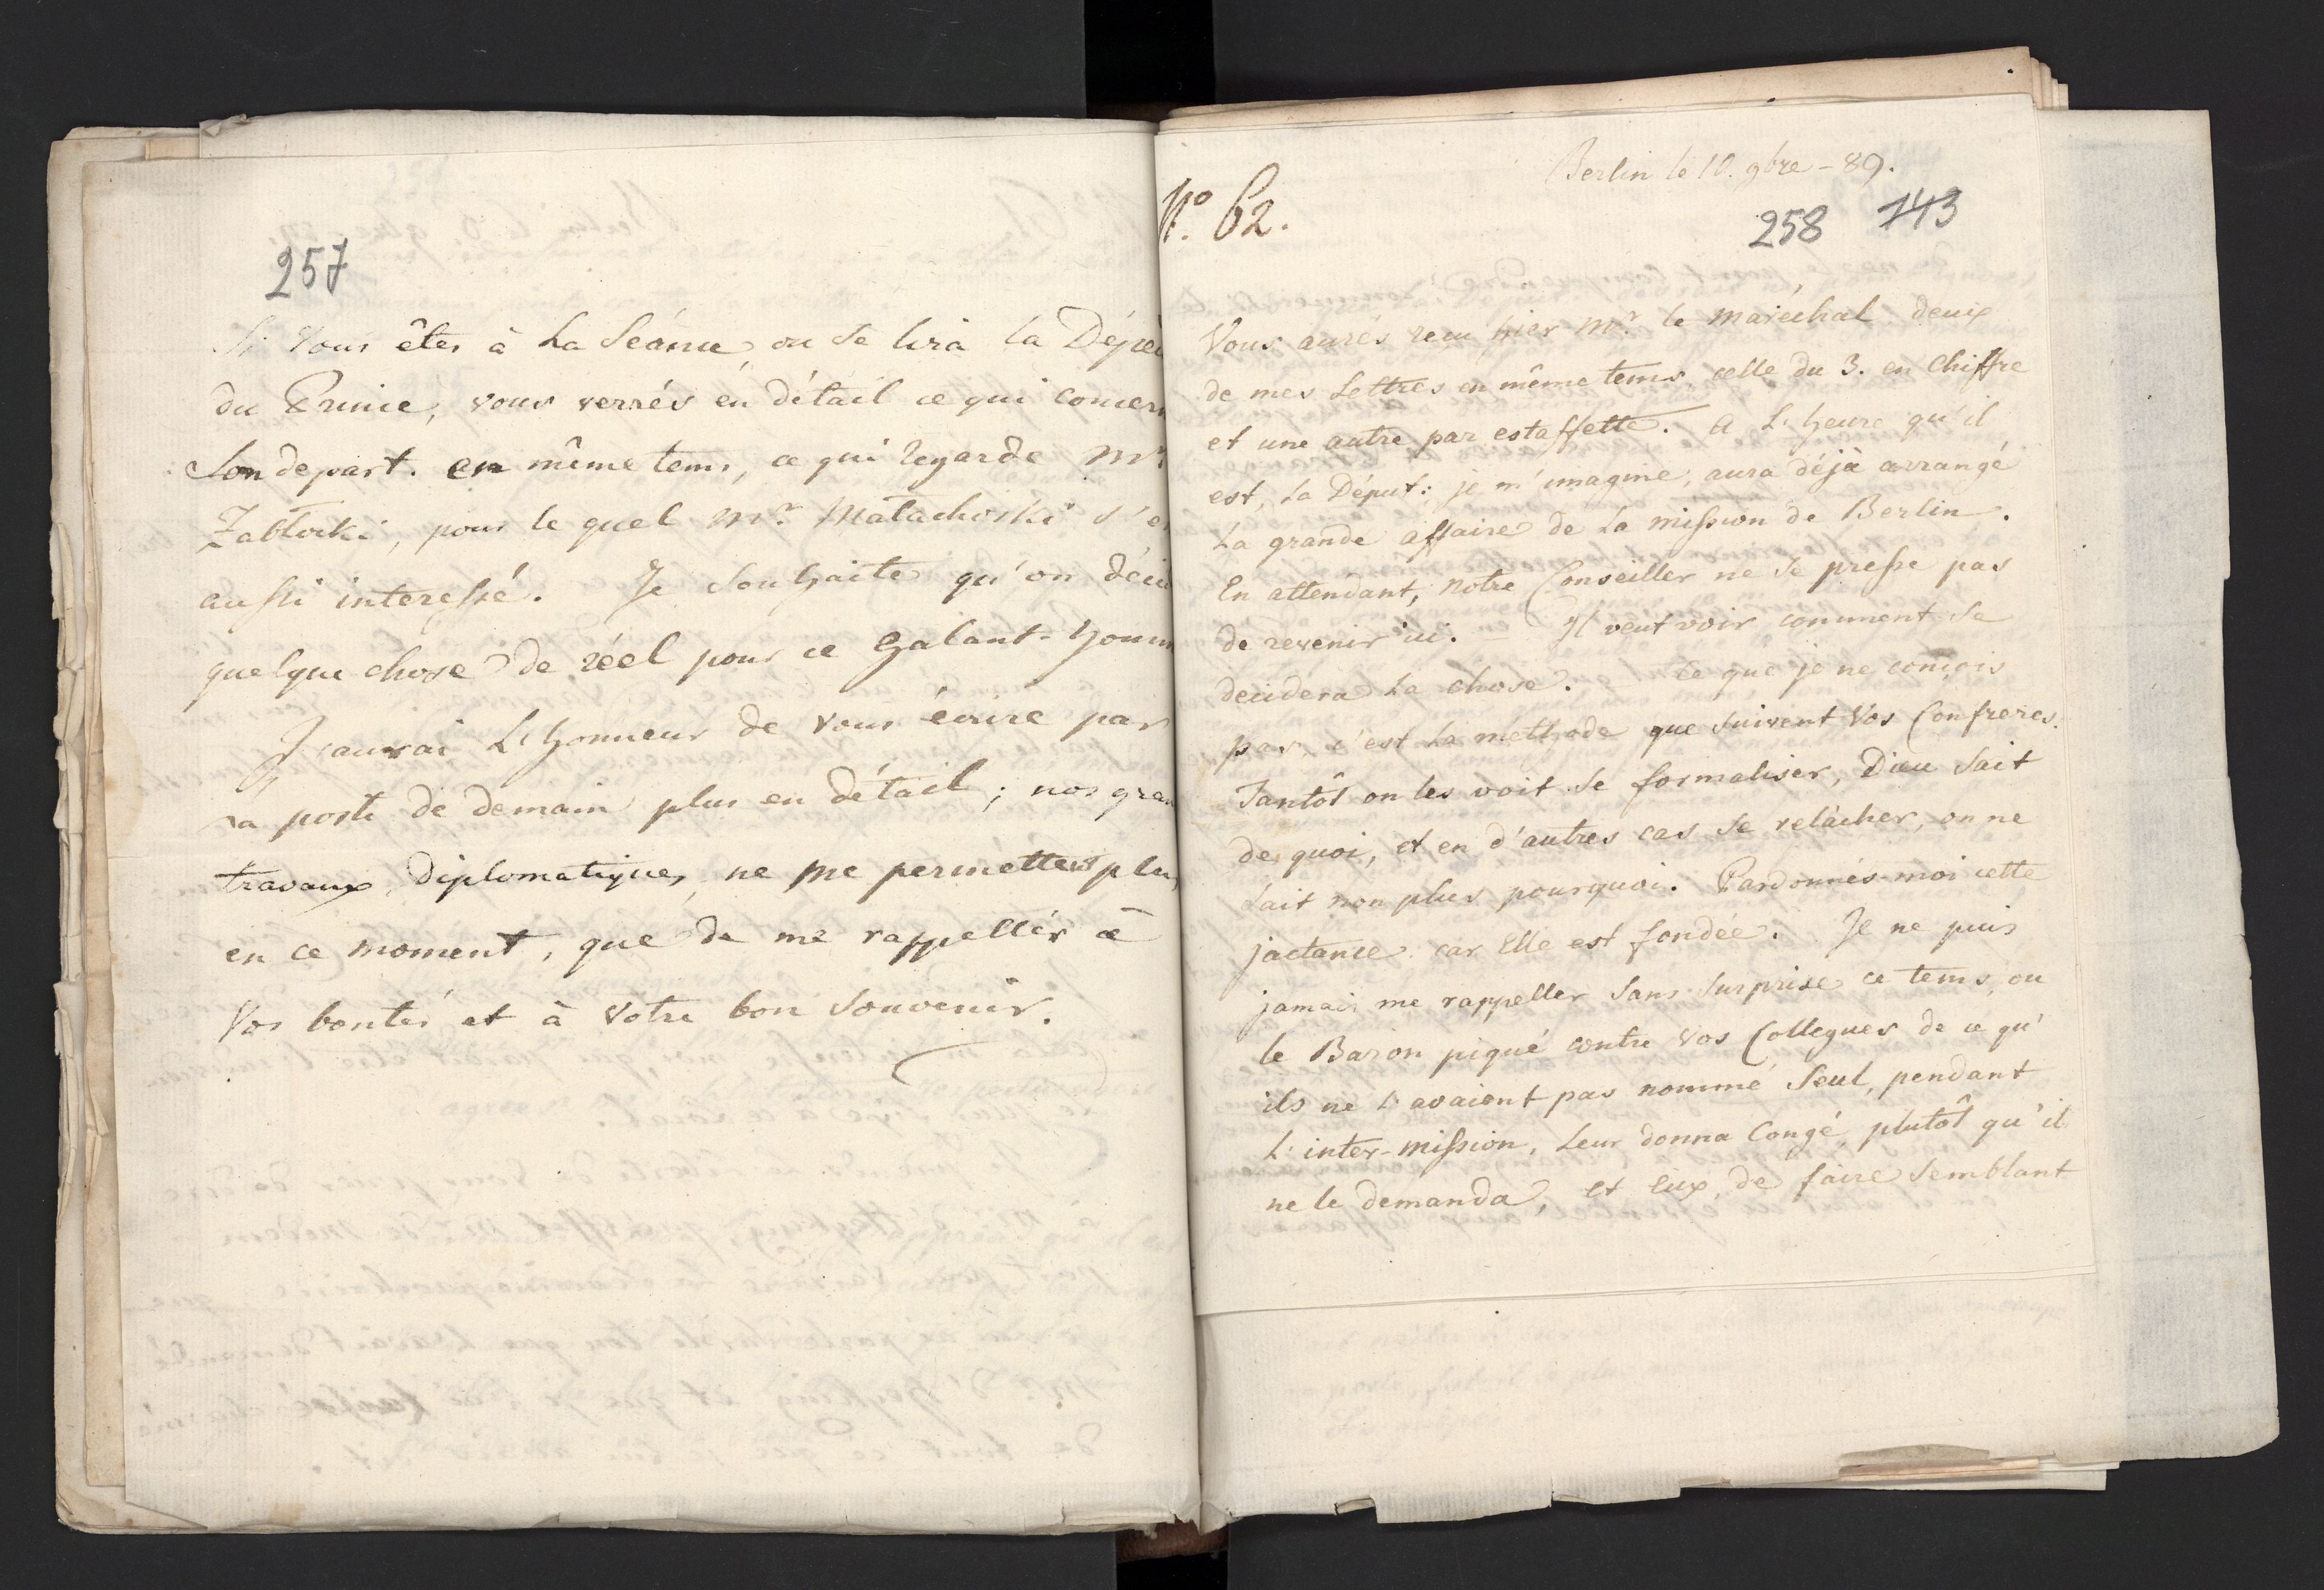 257
Si vous êtes à La Séance ou se lira la Dépec
du Prince, vous verrés en détail ce qui concern
Son depart. en même tems, ce qui regarde Mr
Zabłocki, pour le quel Mr. Małachoski s'e
aussi interessé. Je Souhaite qu'on déci
quelque chose de réel pour ce Galant-homm
J'aurai L'honneur de vous écrire par
La poste de demain plus en détail; nos gran
travaux diplomatiques, ne me permettent plus
en ce moment, que de me rappeller à
Vos bontés et à votre bon Souvenir.
No. 62.
Berlin le 10. 9bre - 89.
258 143
Vous aurés reçu hier Mr. le Maréchal deux
de mes Lettres en même tems, celle du 3. en Chiffre
et une autre par estaffette. A L'heure qu'il
est, La Déput: je m'imagine, aura déjà arrangé
La grande affaire de La mission de Berlin.
En attendant, notre Conseiller ne se presse pas
de revenir ici. — Il veut voir comment Se
decidera La chose. — Ce que je ne conçois
pas, c'est La methode que suivent Vos Confreres.
Tantôt on les voit se formaliser, Dieu Sait
de quoi, et en d'autres cas se relâcher, on ne
Sait non plus pourquoi. Pardonnés-moi cette
jactance car Elle est fondée. Je ne puis
jamais me rappeller Sans Surprise ce tems, ou
le Baron piqué contre vos Collegues de ce qu'
ils ne L'avaient pas nommé Seul, pendant
L'inter-mission, Leur donna Congé, plutôt qu'il
ne le demanda, et Eux, de faire Semblant